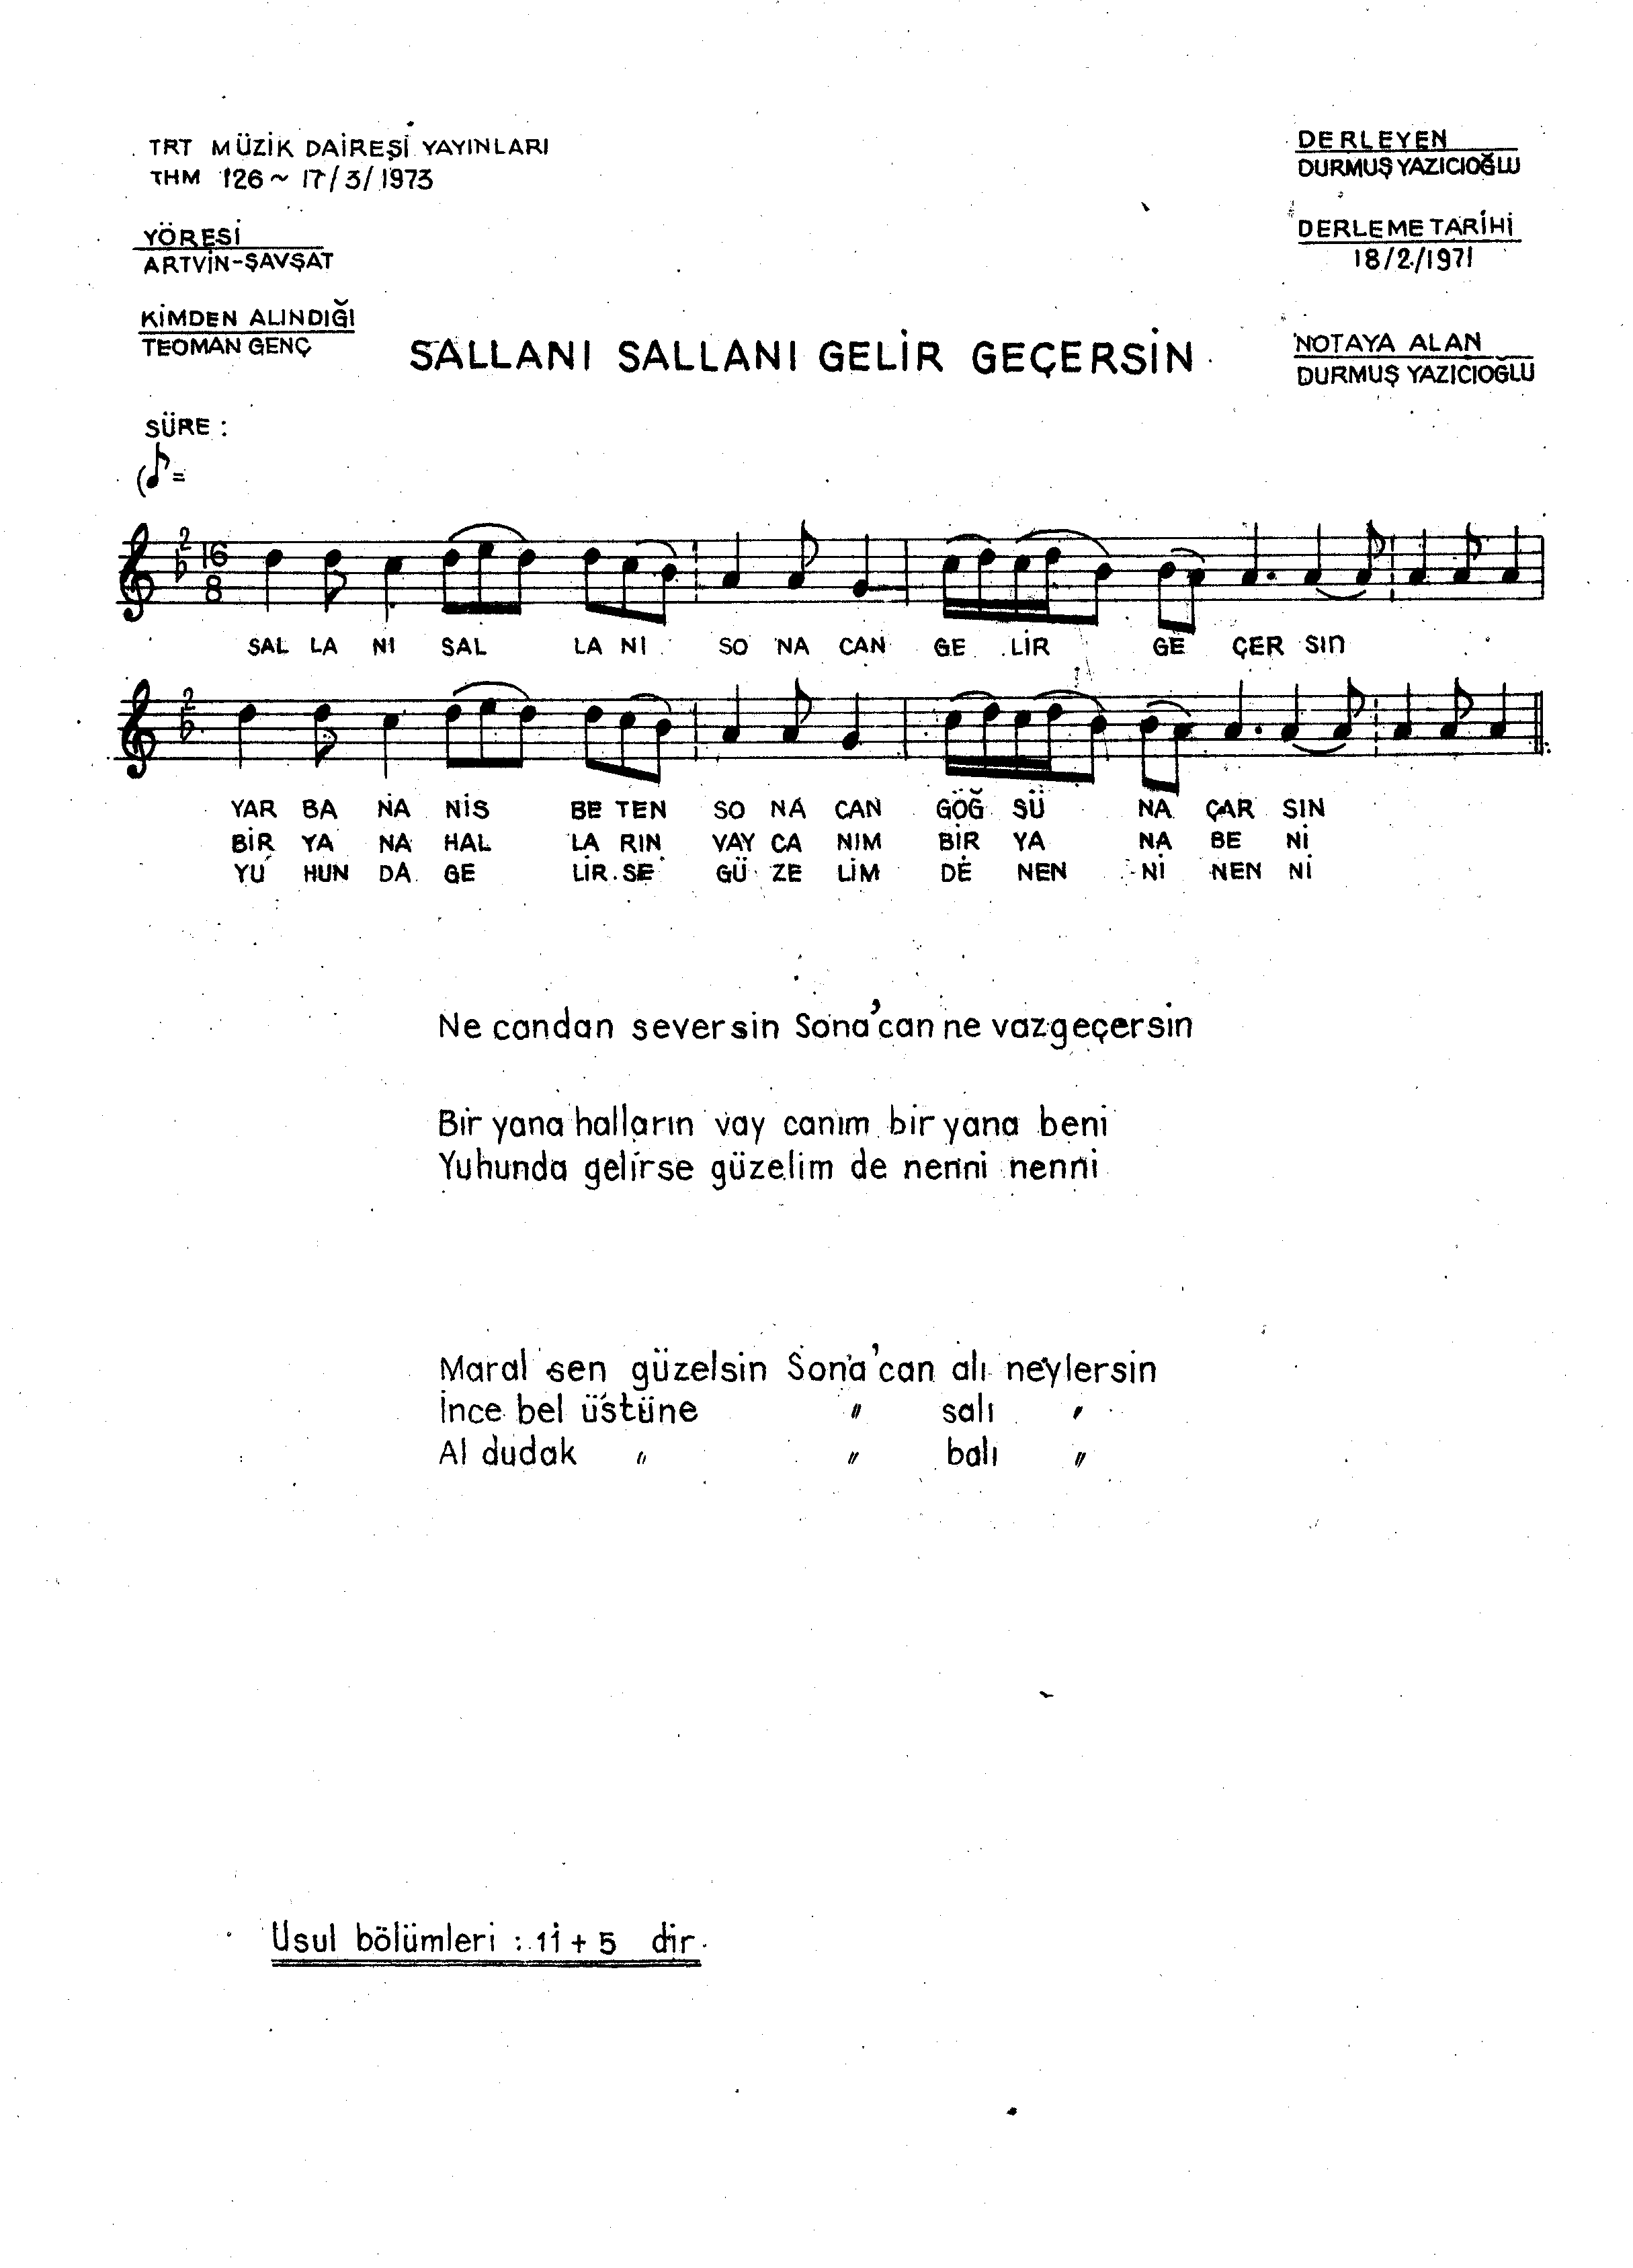 TRT MÜZİK DAİREŞİ YAYINLARI
THM 126 ~ 17/3/1973
YÖRESİ
ARTVİN-ŞAVŞAT
KİMDEN ALINDIĞI
TEOMAN GENÇ
DERLEYEN
DURMUŞ YAZICIOĞLU
DERLEME TARİHİ
18/2/1971
NOTAYA ALAN
DURMUŞ YAZICIOĞLU
SALLANI SALLANI GELİR GEÇERSİN
SÜRE :
(♪=
2
16
8
SAL LA NI SAL LA NI SO NA CAN GE LİR GE ÇER SIN
2
YAR BA NA NİS BE TEN SO NA CAN GÖĞ SÜ NA ÇAR SIN
BİR YA NA HAL LA RIN VAY CA NIM BİR YA NA BE Nİ
YU HUN DA GE LİR SE GÜ ZE LİM DE NEN Nİ NEN Nİ
Ne candan seversin Sona'can ne vazgeçersin
Bir yana halların vay canım bir yana beni
Yuhunda gelirse güzelim de nenni nenni
Maral sen güzelsin Sona'can alı neylersin
İnce bel üstüne " salı "
Al dudak " " balı "
Usul bölümleri : 11 + 5 dir.